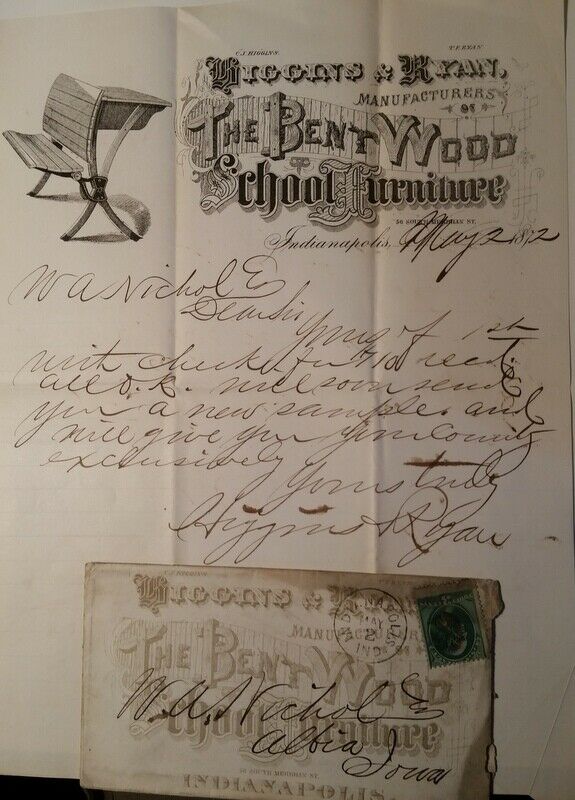 C.J. HIGGINS. T.F. RYAN
HIGGINS & RYAN,
MANUFACTURERS
OF
THE BENT WOOD
School Furniture
56 SOUTH MERIDIAN ST.
Indianapolis, May 2 1872
W A Nichol Es
Dear Sir
Yours of 1st
with check for $100 recd.
all O.K. will soon send
you a new sample. and
will give you your County
exclusively
Yours truly
Higgins & Ryan
C.J. HIGGINS
HIGGINS &
MANUFACTURERS
INDIANAPOLIS
MAY
2
IND
OF
THE BENT WOOD
School Furniture
W. A. Nichol Es
Albia Iowa
56 SOUTH MERIDIAN ST.
INDIANAPOLIS.